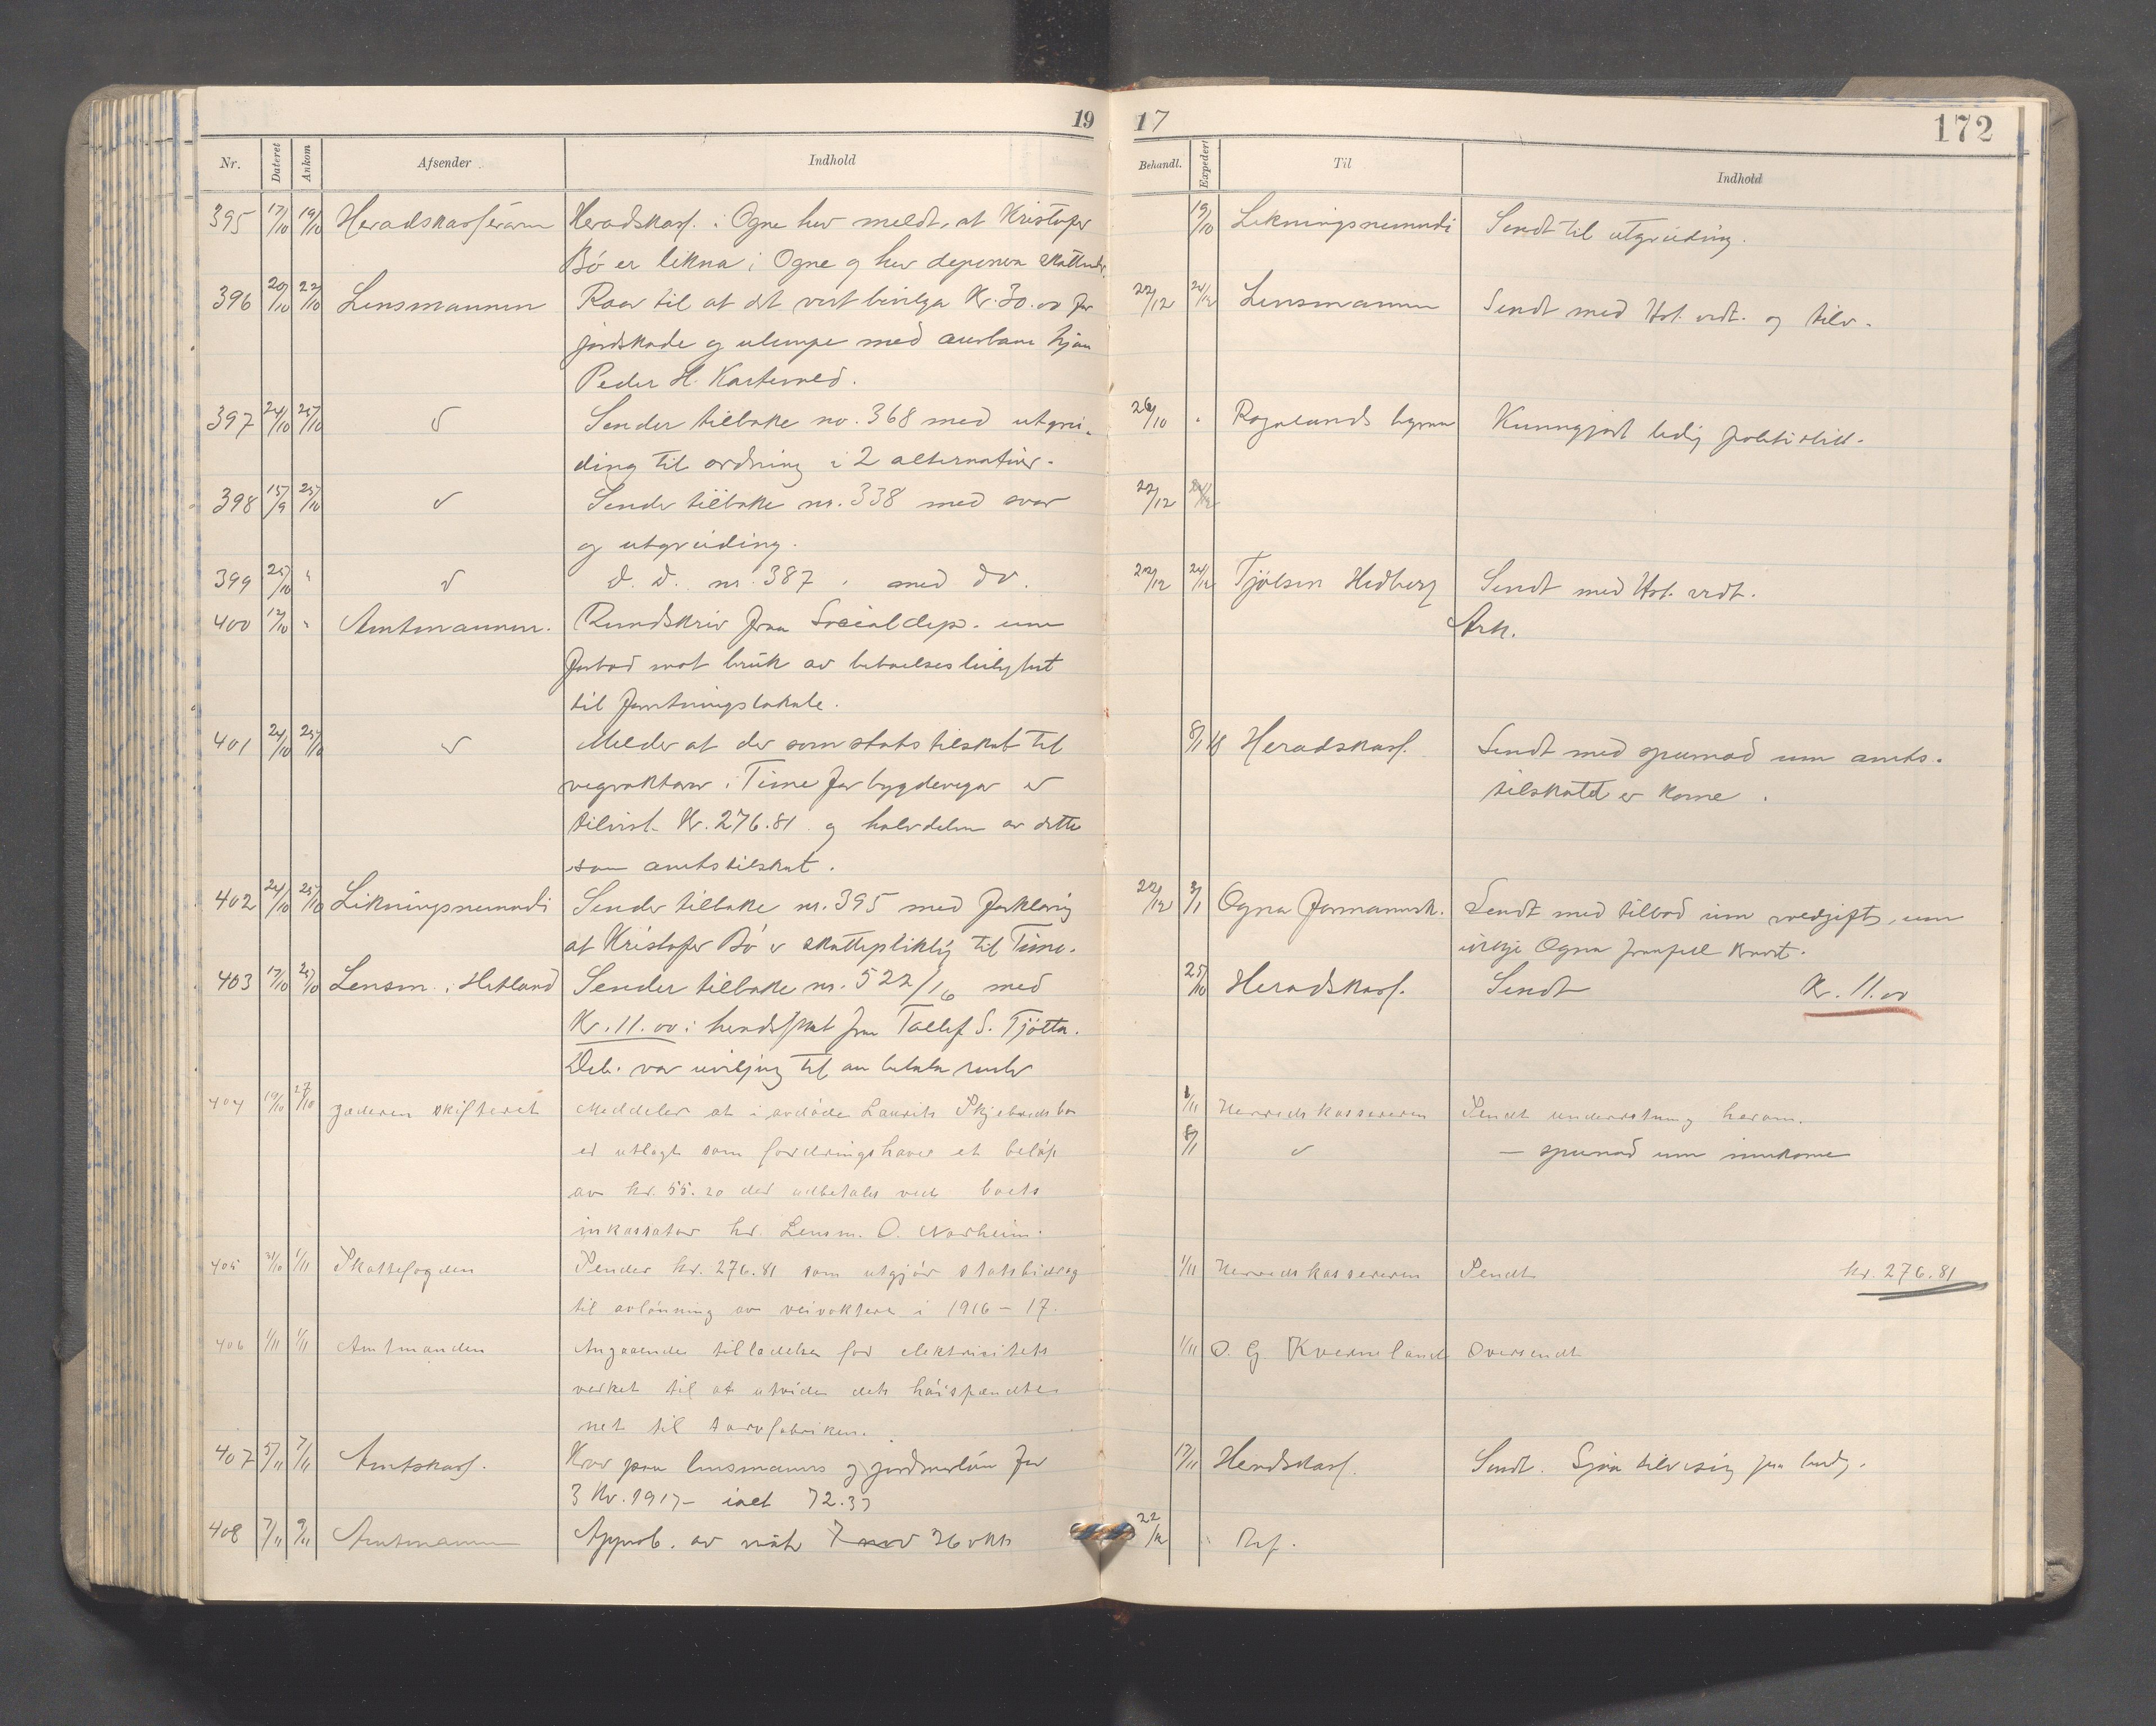 19 17 172
Nr. Dateret Ankom Afsender Indhold Behandl. Expedert Til Indhold
395 17/10 19/10 Heradskasserarn Heradskass. i Ogne hev meldt, at Kristofer 19/10 Likningsnemndi Sendt til utgreiding.
Bø er likna i Ogne og hev deponera
396 20/10 22/10 Lensmannen Raar til at det vert bevilga Kr. 30.00 for 22/12 24/12 Lensmannen Sendt med Hst. vedt. og tilv.
jordskade og ulempe med aurbane hjaa
Peder H.
397 24/10 25/10 " Sender tilbake no. 368 med utgrei- 26/10 " Rogalands Kunngjort ledig politistill.
ding til ordning i 2 alternativer.
398 15/9 25/10 " Sender tilbake nr. 338 med svar 22/12 24/12
og utgreiding.
399 25/10 " " D. D. nr. 387, med do. 22/12 24/12 Tjölsen Hedberg Sendt med Hst. vedt.
400 12/10 " Amtmannen. Rundskriv fraa Socialdep. um Ark.
forbod mot bruk av
til forretningslokale.
401 24/10 25/10 " Melder at der som statstilskot til 8/1 18 Heradskass. Sendt med spurnad um amts-
vegvaktarar i Time for bygdevegar er tilskotet er kome.
tilvist Kr. 276.81 og halvdelen av dette
som amtstilskot.
402 24/10 25/10 Likningsnemndi Sender tilbake nr. 395 med forklaring 22/12 3/1 Ogna formannsk. Sendt med tilbod um semjeft, um
at Kristofer Bø er skattepliktig til Time. ikkje Ogna fraafell kravet.
403 17/10 25/10 Lensm. i Hetland Sender tilbake nr. 522/16 med 25/10 Heradskass. Sendt Kr. 11.00
Kr. 11.00 i heradsskat fraa Tallef S. Tjötta.
Deb. var uviljug til aa betala renter
404 19/10 27/10 Jæderen skifteret Meddeler at i avdøde Laurits Skjebreds bo 2/11 Herredskassereren Sendt underretning herom.
er utlagt som fordringshaver et beløp 8/1 " — spurnad um innkome
av kr. 55.20 der utbetales ved boets
inkassator hr. Lensm. O. Norheim.
405 31/10 1/11 Skattefogden Sender kr. 276.81 som utgjør statsbidrag 1/11 Herredskassereren Sendt kr. 276.81
til avlønning av veivoktere i 1916-17.
406 1/11 1/11 Amtmanden Angaaende tilladelse for elektricitets 1/11 O. G. Kverneland Oversendt
verket til at utvide dets høispændte
net til torvfabriken.
407 5/11 7/11 Amtskass. Krav paa lensmanns og jordmorløn for 17/11 Heradskass. Sendt. Sjaa tilvising paa
3 Kv. 1917 – ialt 72.37
408 7/11 9/11 Amtmannen Approb. av møte 7 nov 26 okt 22/12 " Ref.